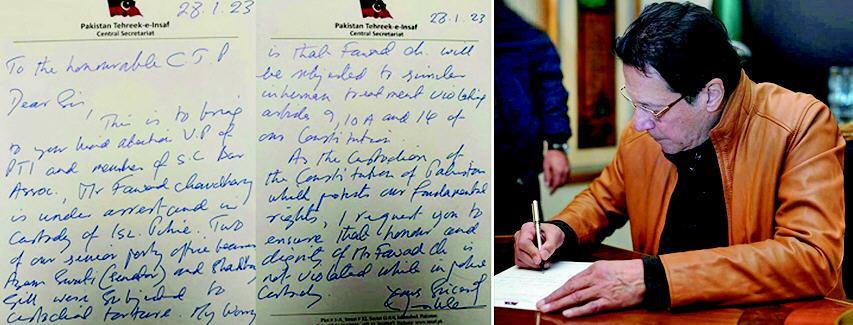 28.1.23
Pakistan Tehreek-e-Insaf
Central Secretariat
To the honourable CJP
Dear Sir,
This is to bring
to your kind attention V.P of
PTI and member of S.C Bar
Assoc., Mr Fawad Chaudhary
is under arrest and in
custody of Isl. Police. Two
of our senior party office bearers
Azam Swati (Senator) and Shahbaz
Gill were subjected to
custodial torture. My worry
28.1.23
Pakistan Tehreek-e-Insaf
Central Secretariat
is that Fawad Ch. will
be subjected to similar
inhuman treatment violating
article 9, 10A and 14 of
our Constitution.
As the custodian of
the Constitution of Pakistan
which protects our fundamental
rights, I request you to
ensure that honour and
dignity of Mr Fawad Ch. is
not violated while in police
custody.
Yours Sincerely